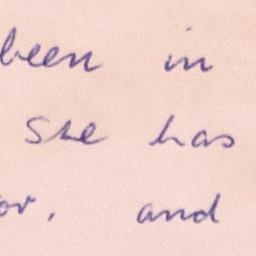 been in
She has
and